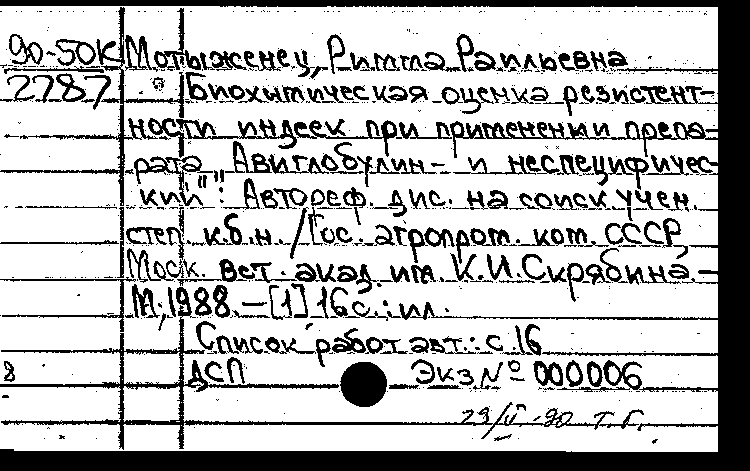 90-50К Мотыженец, Римма Раильевна
2787 Биохимическая оценка резистент-
ности индеек при применении препа-
рата "Авиглобулин- и неспецифичес-
кий": Автореф. дис. на соиск. учен.
степ. к.б.н. / Гос. агропром. ком. СССР,
Моск. вет. акад. им. К.И.Скрябина.-
М., 1988. - [1] 16 с.: ил.
Список работ авт.: с. 16
8 ДСП Экз № 000006
-90 Т.Г.